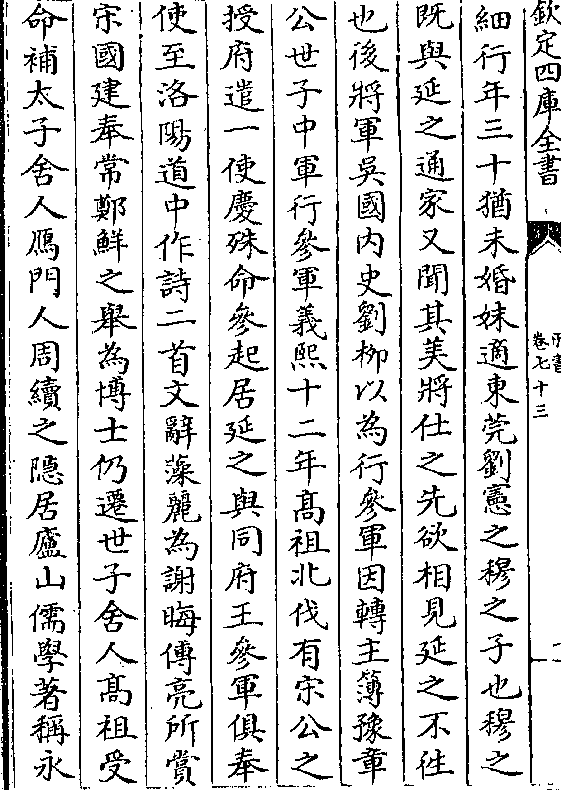 欽定四庫全書
卷七十三
細行年三十猶未婚妹適東莞劉憲之穆之子也穆之
既與延之通家又聞其美將仕之先欲相見延之不徃
也後將軍吳國內史劉栁以為行參軍因轉主簿豫章
公世子中軍行參軍義熙十二年髙祖北伐有宋公之
授府遣一使慶殊命參起居延之與同府王參軍俱奉
使至洛陽道中作詩二首文辭藻麗為謝晦傅亮所賞
宋國建奉常鄭鮮之舉為博士仍遷世子舍人髙祖受
命補太子舍人鴈門人周續之隱居廬山儒學著稱永